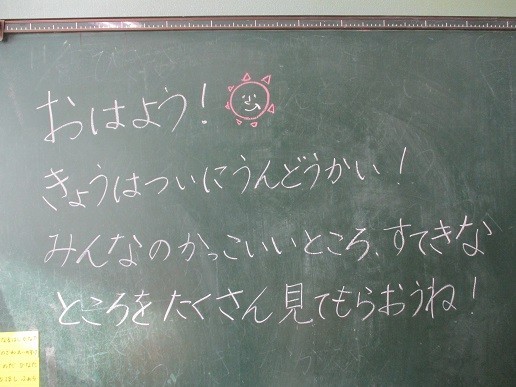 おはよう!
きょうはついにうんどうかい!
みんなのかっこいいところ、すてきな
ところをたくさん見てもらおうね!